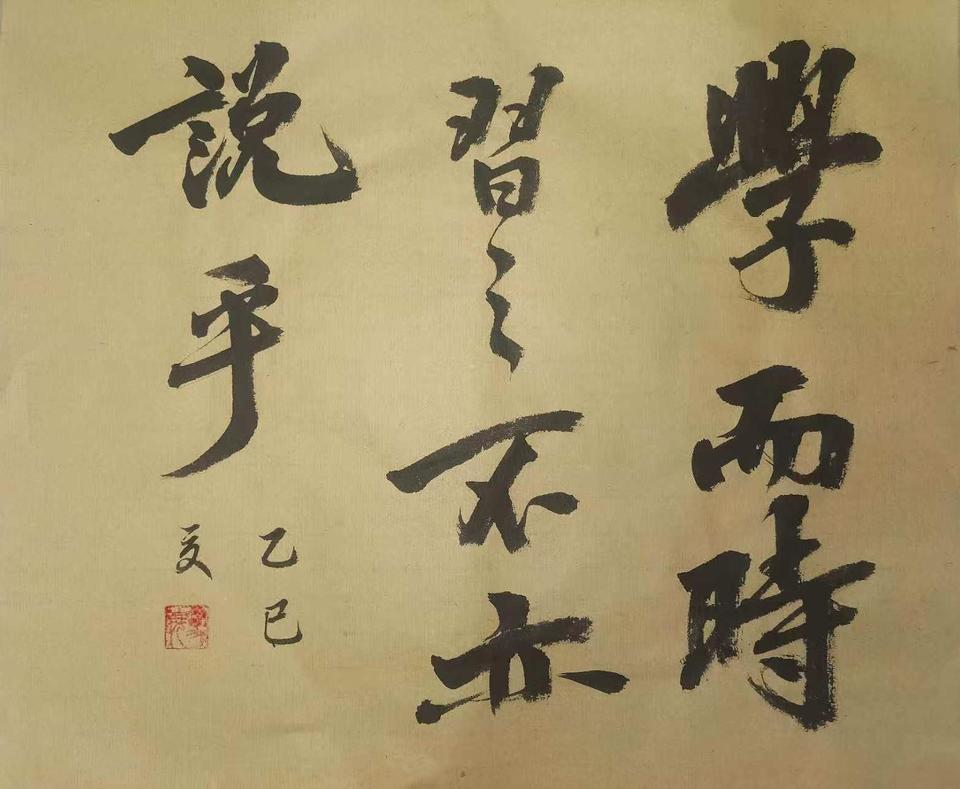 學而時
習之不亦
說乎
乙巳
夏